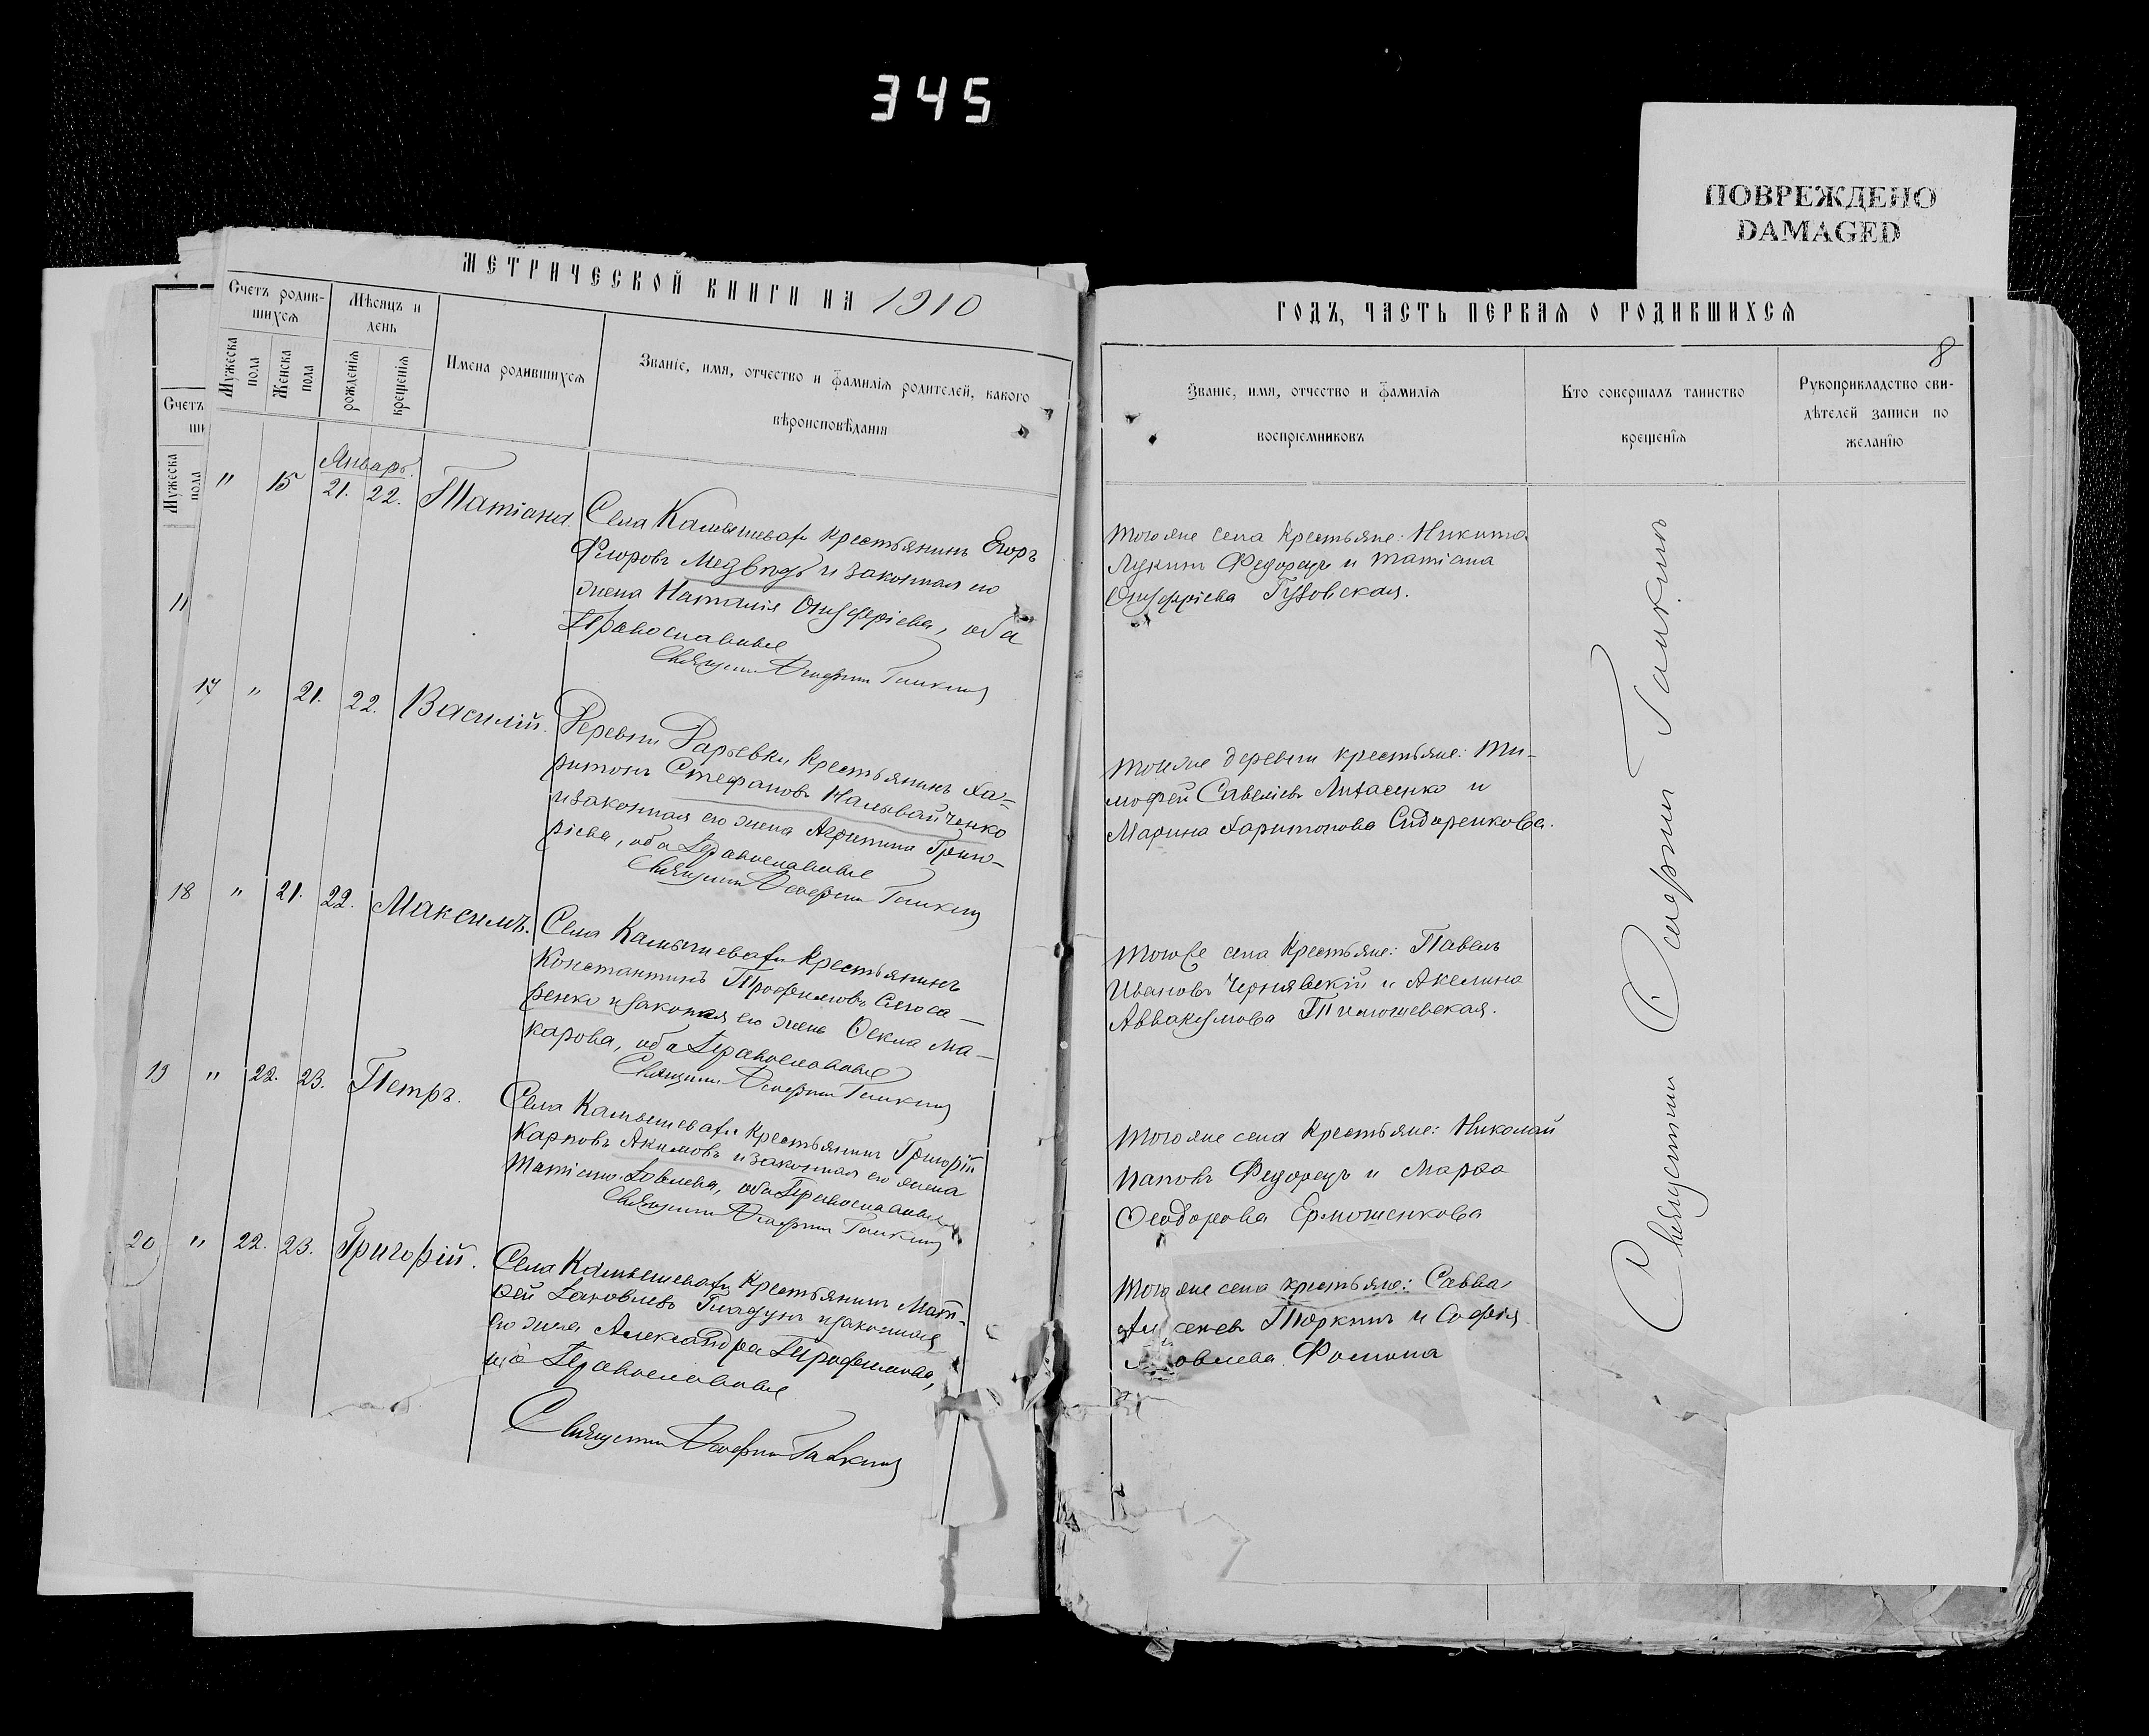 345
ПОВРЕЖДЕНО
DAMAGED
МЕТРИЧЕСКОЙ КНИГИ НА 1910
Счетъ родив-
шихся
Мужеска
пола
Женска
пола
Мѣсяцъ и
день
рожденія
крещенія
Имена родившихся
Званіе, имя, отчество и фамилія родителей, какого
вѣроисповѣданія
Счетъ
ши
Мужеска
пола
"
Январь.
" 15 21. 22. Татіана.
Села Камышевахи крестьянинъ Егоръ
Флоровъ Медвѣдь и законная его
жена Наталія Онуфріева, оба
Православные
Священникъ Галкинъ
17 " 21. 22. Василій.
Деревни Дарьевки крестьянинъ Ха-
ритонъ Стефановъ Наливайченко
и законная его жена Агрипина Григо-
ріева, оба Православные
Священникъ Галкинъ
18 " 21. 22. Максимъ.
Села Камышевахи крестьянинъ
Константинъ Трофимовъ Слюса-
ренко и законная его жена Ѳекла Ма-
карова, оба Православные
Священникъ Галкинъ
19 " 22. 23. Петръ.
Села Камышевахи крестьянинъ Григорій
Карповъ Акимовъ и законная его жена
Татіана Іовлева, оба Православные
Священникъ Галкинъ
20 " 22. 23. Григорій.
Села Камышевахи крестьянинъ Мат-
ѳей Іаковлевъ Гладунъ и законная
его жена Александра Трофимова,
оба Православные
Священникъ Галкинъ
ГОДЪ, ЧАСТЬ ПЕРВАЯ О РОДИВШИХСЯ
8
Званіе, имя, отчество и фамилія
воспріемниковъ
Кто совершалъ таинство
крещенія
Рукоприкладство сви-
дѣтелей записи по
желанію
Того же села крестьяне: Никита
Лукинъ Федорецъ и Татіана
Онуфріева Гузовская.
Той же деревни крестьяне: Ти-
мофей Савеліевъ и
Марина Харитонова Сидоренкова.
Того же села крестьяне: Павелъ
Ивановъ Чернявскій и Акелина
Аввакумова Тимошевская.
Того же села крестьяне: Николай
Федорецъ и Марѳа
Ѳеодорова Ермошенкова
Того же села крестьяне: Савва
Тюркинъ и Софія
Фомина
Священникъ Галкинъ